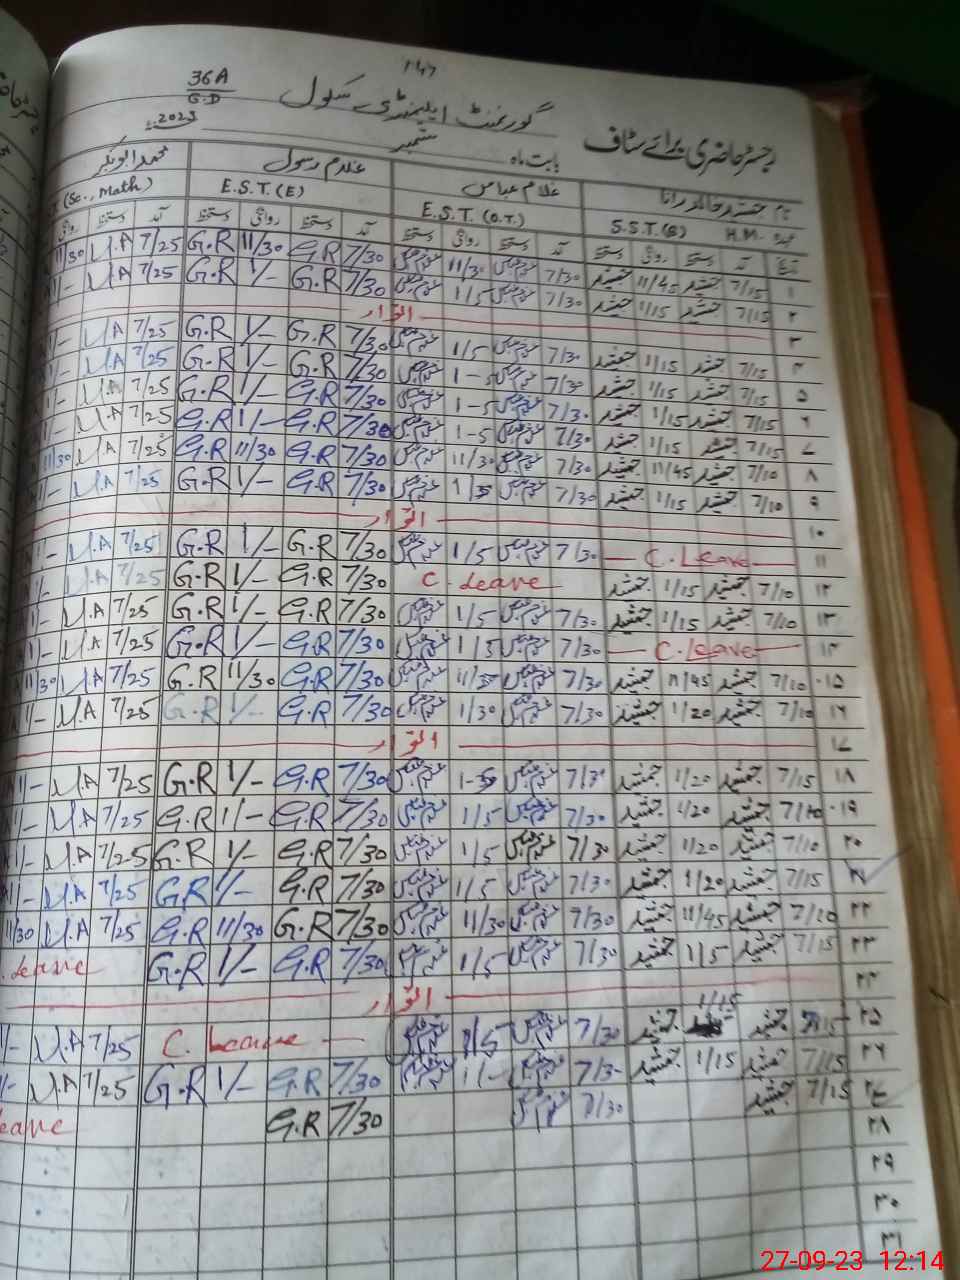 147
36A
G.D
گورنمنٹ ایلیمنٹری سکول
رجسٹر حاضری برائے سٹاف
بابت ماہ ستمبر 2023ء
نام جمشید خالد رانا غلام عباس غلام رسول محمد ابوبکر
عہدہ H.M. S.S.T.(G) E.S.T.(O.T.) E.S.T.(E) (Sc., Math)
تاریخ آمد دستخط روانگی دستخط آمد دستخط روانگی دستخط آمد دستخط روانگی دستخط آمد دستخط روانگی
۱ 7/15 جمشید 11/45 جمشید 7/30 11/30 7/30 G.R 11/30 G.R 7/25 M.A 11/30
۲ 7/15 جمشید 1/15 جمشید 7/30 1/5 7/30 G.R 1/- G.R 7/25 M.A 1/-
۳ اتوار
۴ 7/15 جمشید 1/15 جمشید 7/30 1/5 7/30 G.R 1/- G.R 7/25 M.A 1/-
۵ 7/15 جمشید 1/15 جمشید 7/30 1-5 7/30 G.R 1/- G.R 7/25 M.A 1/-
۶ 7/15 جمشید 1/15 جمشید 7/30 1-5 7/30 G.R 1/- G.R 7/25 M.A 1/-
۷ 7/15 جمشید 1/15 جمشید 7/30 1-5 7/30 G.R 1/- G.R 7/25 M.A 1/-
۸ 7/10 جمشید 11/45 جمشید 7/30 11/30 7/30 G.R 11/30 G.R 7/25 M.A 11/30
۹ 7/10 جمشید 1/15 جمشید 7/30 1/5 7/30 G.R 1/- G.R 7/25 M.A 1/-
۱۰ اتوار
۱۱ C. Leave 7/30 1/5 7/30 G.R 1/- G.R 7/25 M.A 1/-
۱۲ 7/10 جمشید 1/15 جمشید C. Leave 7/30 G.R 1/- G.R 7/25 M.A 1/-
۱۳ 7/10 جمشید 1/15 جمشید 7/30 1/5 7/30 G.R 1/- G.R 7/25 M.A 1/-
۱۴ C. Leave 7/30 1/5 7/30 G.R 1/- G.R 7/25 M.A 1/-
۱۵ 7/10 جمشید 11/45 جمشید 7/30 11/30 7/30 G.R 11/30 G.R 7/25 M.A 11/30
۱۶ 7/10 جمشید 1/20 جمشید 7/30 1/30 7/30 G.R 1/- G.R 7/25 M.A 1/-
۱۷ اتوار
۱۸ 7/15 جمشید 1/20 جمشید 7/30 7/30 G.R 1/- G.R 7/25 M.A 1/-
۱۹ 7/10 جمشید 1/20 جمشید 7/30 1/5 7/30 G.R 1/- G.R 7/25 M.A 1/-
۲۰ 7/10 جمشید 1/20 جمشید 7/30 1/5 7/30 G.R 1/- G.R 7/25 M.A 1/-
۲۱ 7/15 جمشید 1/20 جمشید 7/30 1/5 7/30 G.R 1/- G.R 7/25 M.A 1/-
۲۲ 7/20 جمشید 11/45 جمشید 7/30 11/30 7/30 G.R 11/30 G.R 7/25 M.A 11/30
۲۳ 7/15 جمشید 1/5 جمشید 7/30 1/5 7/30 G.R 1/- G.R Leave
۲۴ اتوار
۲۵ 7/15 جمشید 1/15 جمشید 7/30 1/5 C. Leave 7/25 M.A 1/-
۲۶ 7/15 جمشید 1/15 جمشید 7/30 1/- 7/30 G.R 1/- G.R 7/25 M.A 1/-
۲۷ 7/15 جمشید 7/30 7/30 G.R Leave
۲۸
۲۹
۳۰
۳۱
27-09-23 12:14